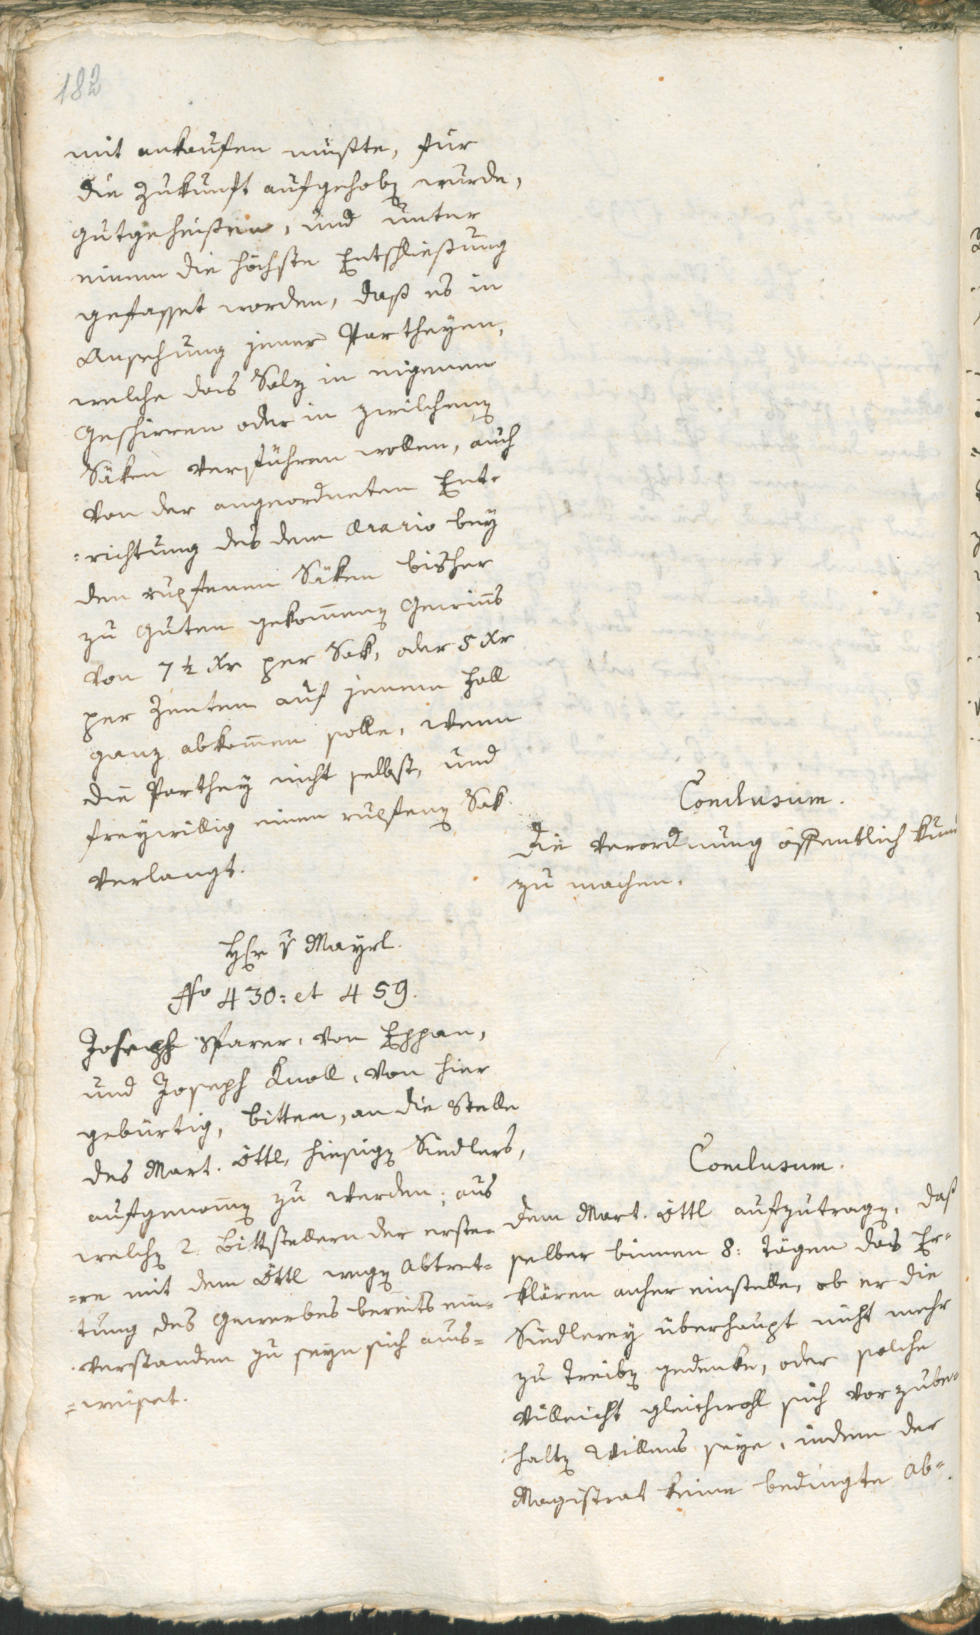 182
mit ankaufen müßte, für
die Zukunft aufgehoben wurde,
gutgeheißen, und unter
einem die höchste Entschließung
gefasset worden, daß es in
Ansehung jener Partheyen,
welche das Salz in eigenen
Geschirren oder in zwilchenen
Säken verführen wollen, auch
von der angeordneten Ent-
=richtung des dem Aerario bey
den rupfenen Säken bisher
zu Guten gekommenen Gewinns
von 7 1/2 Xr per Sak, oder 5 Xr
per Zenten auf jenem Fall
ganz abkommen solle, wenn
die Parthey nicht selbst, und
freywillig einen rupfenen Sak
verlangt.
Conclusum.
Die Verordnung öffentlich kund
zu machen.
Hr v Mayrl.
No 430: et 459.
Joseph Sparer, von Eppan,
und Joseph Knoll, von hier
gebürtig, bitten, an die Stelle
des Mart. Öttl, hiesigen Sindlers,
aufgenommen zu werden; aus
welchen 2. Bittstellern der erste-
=re mit dem Öttl wegen Abtret-
tung des Gewerbes bereits ein-
verstanden zu seyn sich aus=
=weiset.
Conclusum.
Dem Mart. Öttl aufzutragen, daß
selber binnen 8: Tägen das Er=
klären anher einstelle, ob er die
Sindlerey überhaupt nicht mehr
zu treiben gedenke, oder solche
villeicht gleichwohl sich vorzube=
halten Willens seye, indem der
Magistrat keine bedingte Ab=